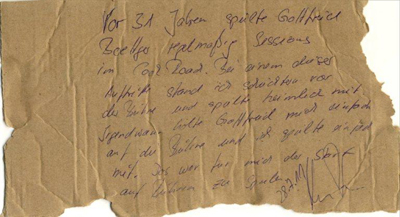 Vor 31 Jahren spielte Gottfried
Boettger regelmäßig Sessions
im Cool Road. Bei einem dieser
Auftritte stand ich schüchtern vor
der Bühne und spielte heimlich mit.
Irgendwann holte Gottfried mich einfach
auf die Bühne und ich spielte einfach
mit. Das war für mich der Start
auf Bühnen zu spielen.